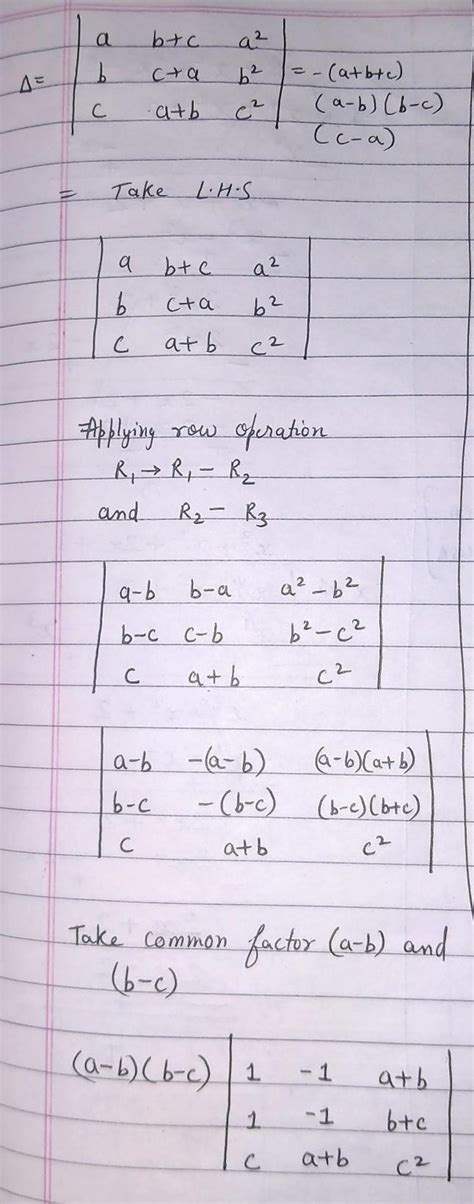 Δ= | a b+c a² |
| b c+a b² | = -(a+b+c)
| c a+b c² | (a-b)(b-c)
(c-a)
= Take L.H.S
| a b+c a² |
| b c+a b² |
| c a+b c² |
Applying row operation
R₁→R₁-R₂
and R₂-R₃
| a-b b-a a²-b² |
| b-c c-b b²-c² |
| c a+b c² |
| a-b -(a-b) (a-b)(a+b) |
| b-c -(b-c) (b-c)(b+c) |
| c a+b c² |
Take common factor (a-b) and
(b-c)
(a-b)(b-c) | 1 -1 a+b |
| 1 -1 b+c |
| c a+b c² |